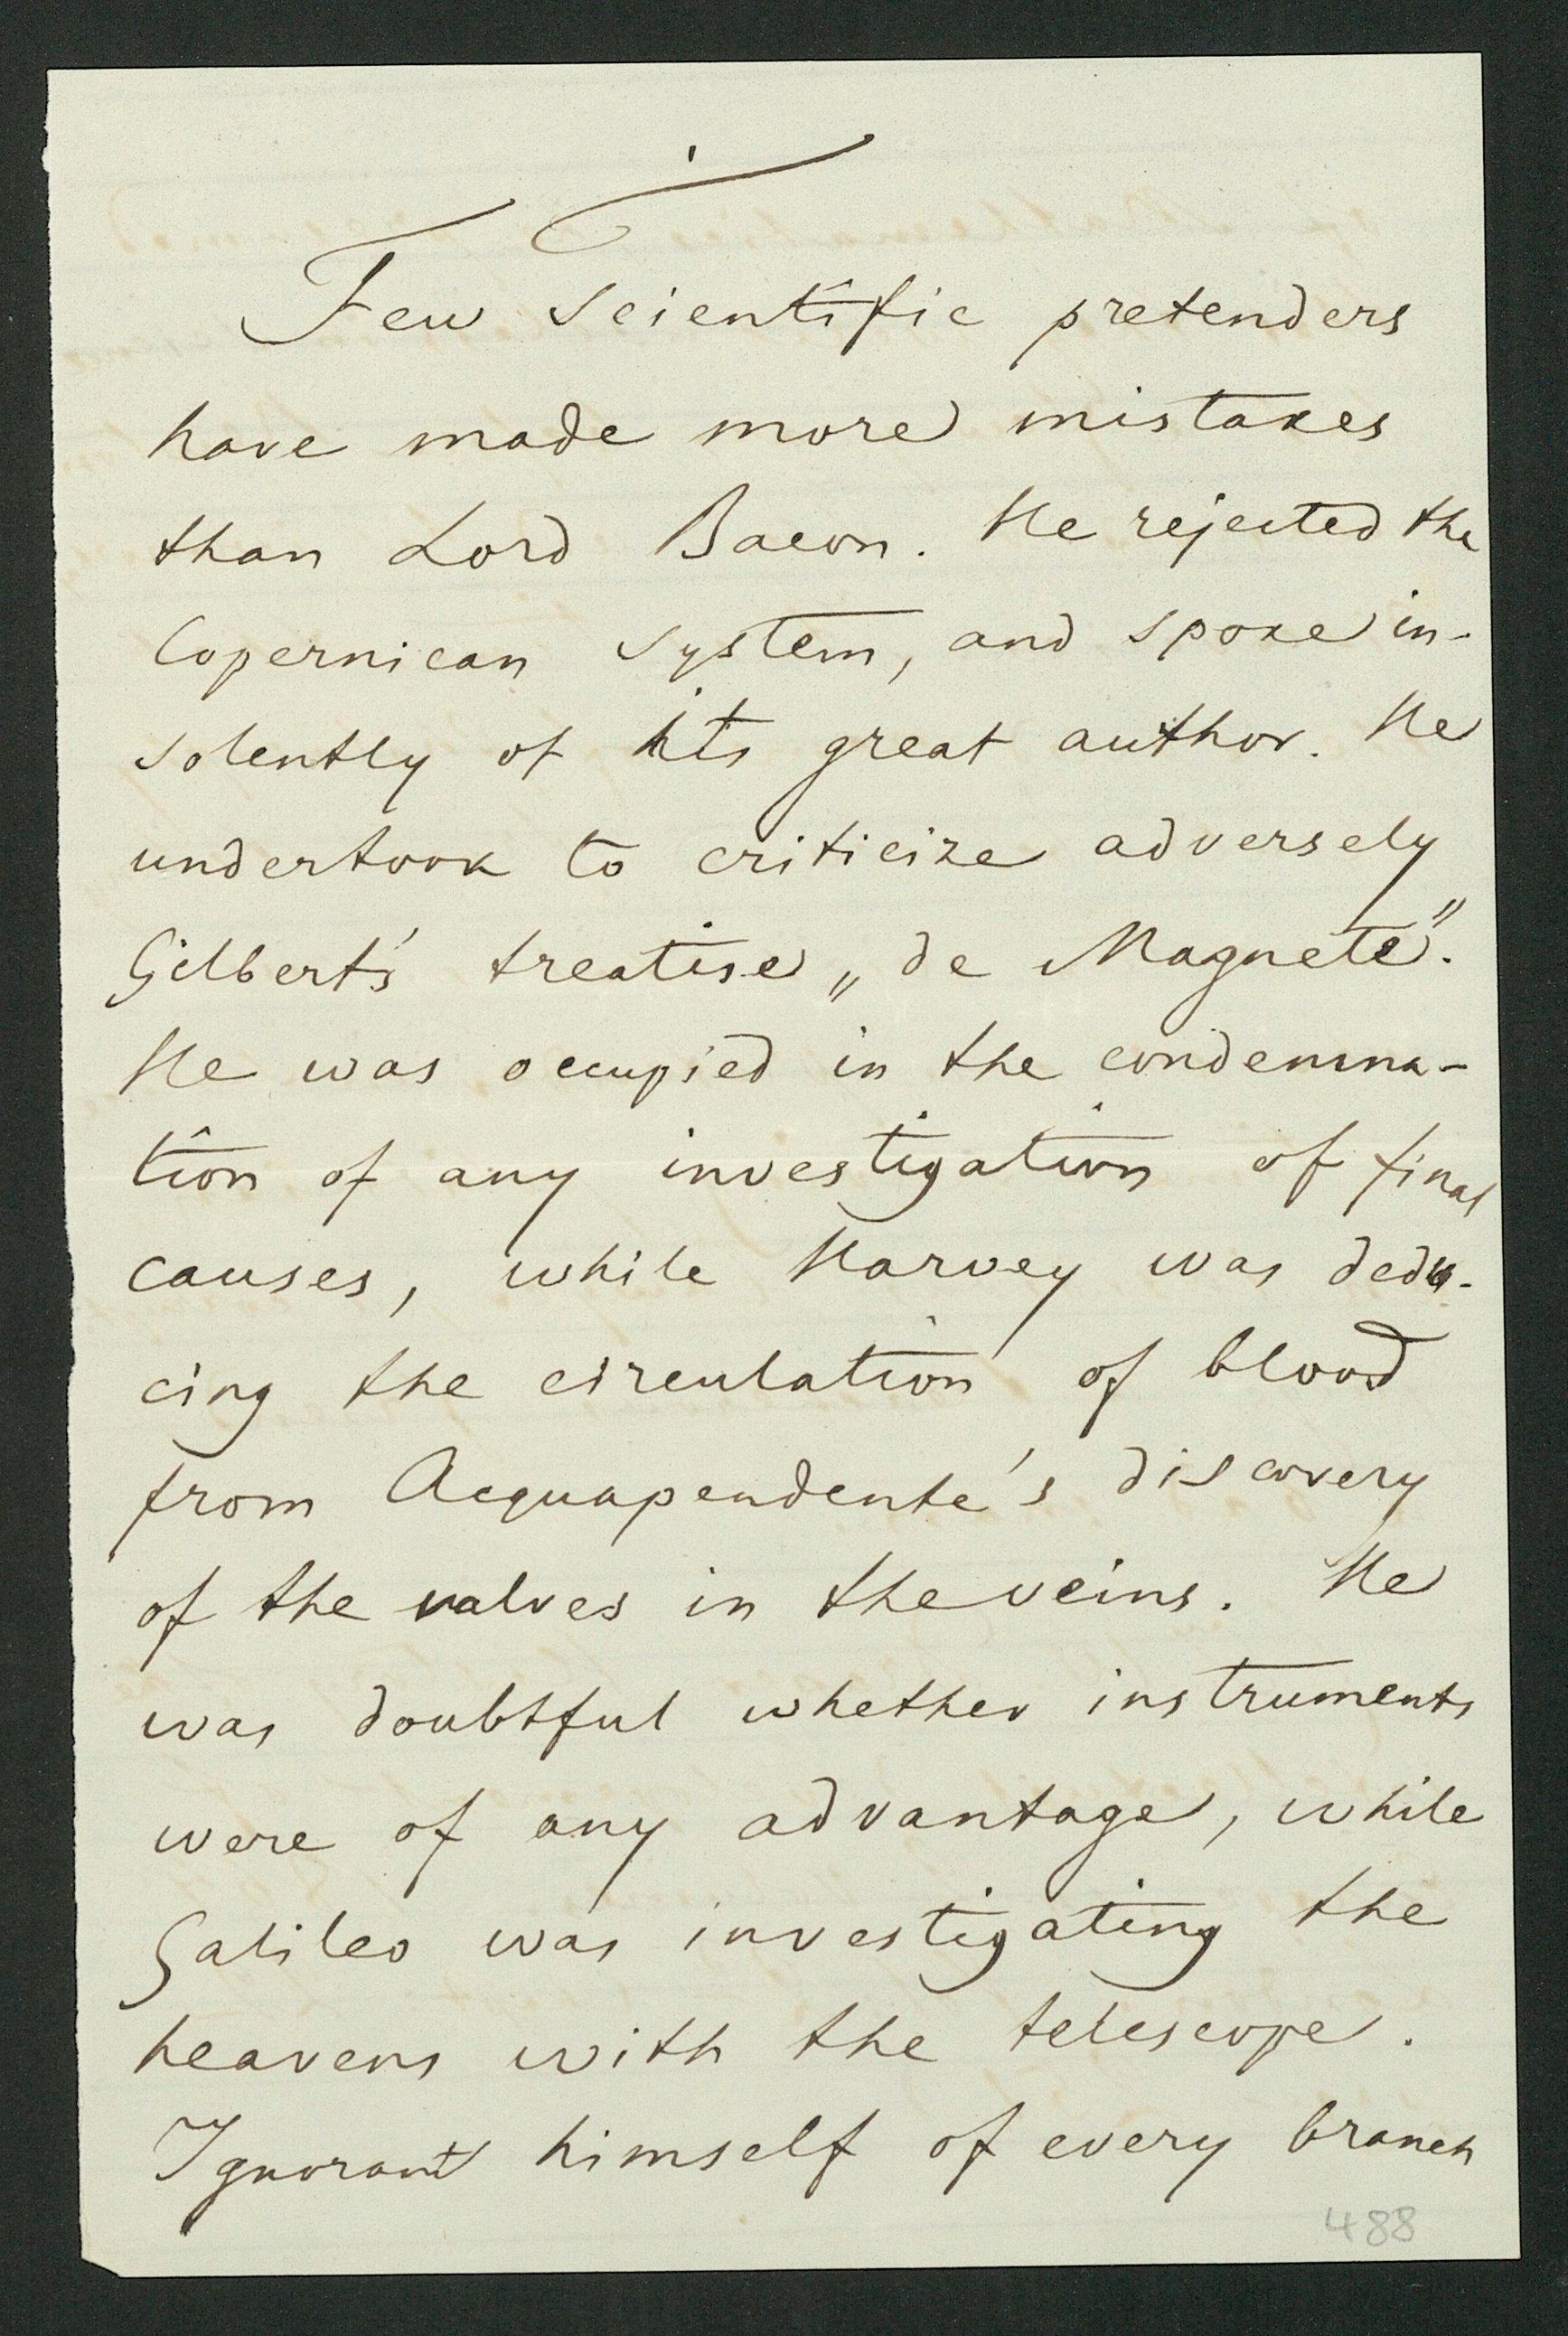 Few scientific pretenders
have made more mistakes
than Lord Bacon. He rejected the
Copernican system, and spoke in-
solently of its great author. He
undertook to criticize adversely
Gilbert's treatise „de Magnete".
He was occupied in the condemna-
tion of any investigation of final
causes, while Harvey was dedu-
cing the circulation of blood
from Acquapendente's discovery
of the valves in the veins. He
was doubtful whether instruments
were of any advantage, while
Galileo was investigating the
heavens with the telescope.
Ignorant himself of every branch
488